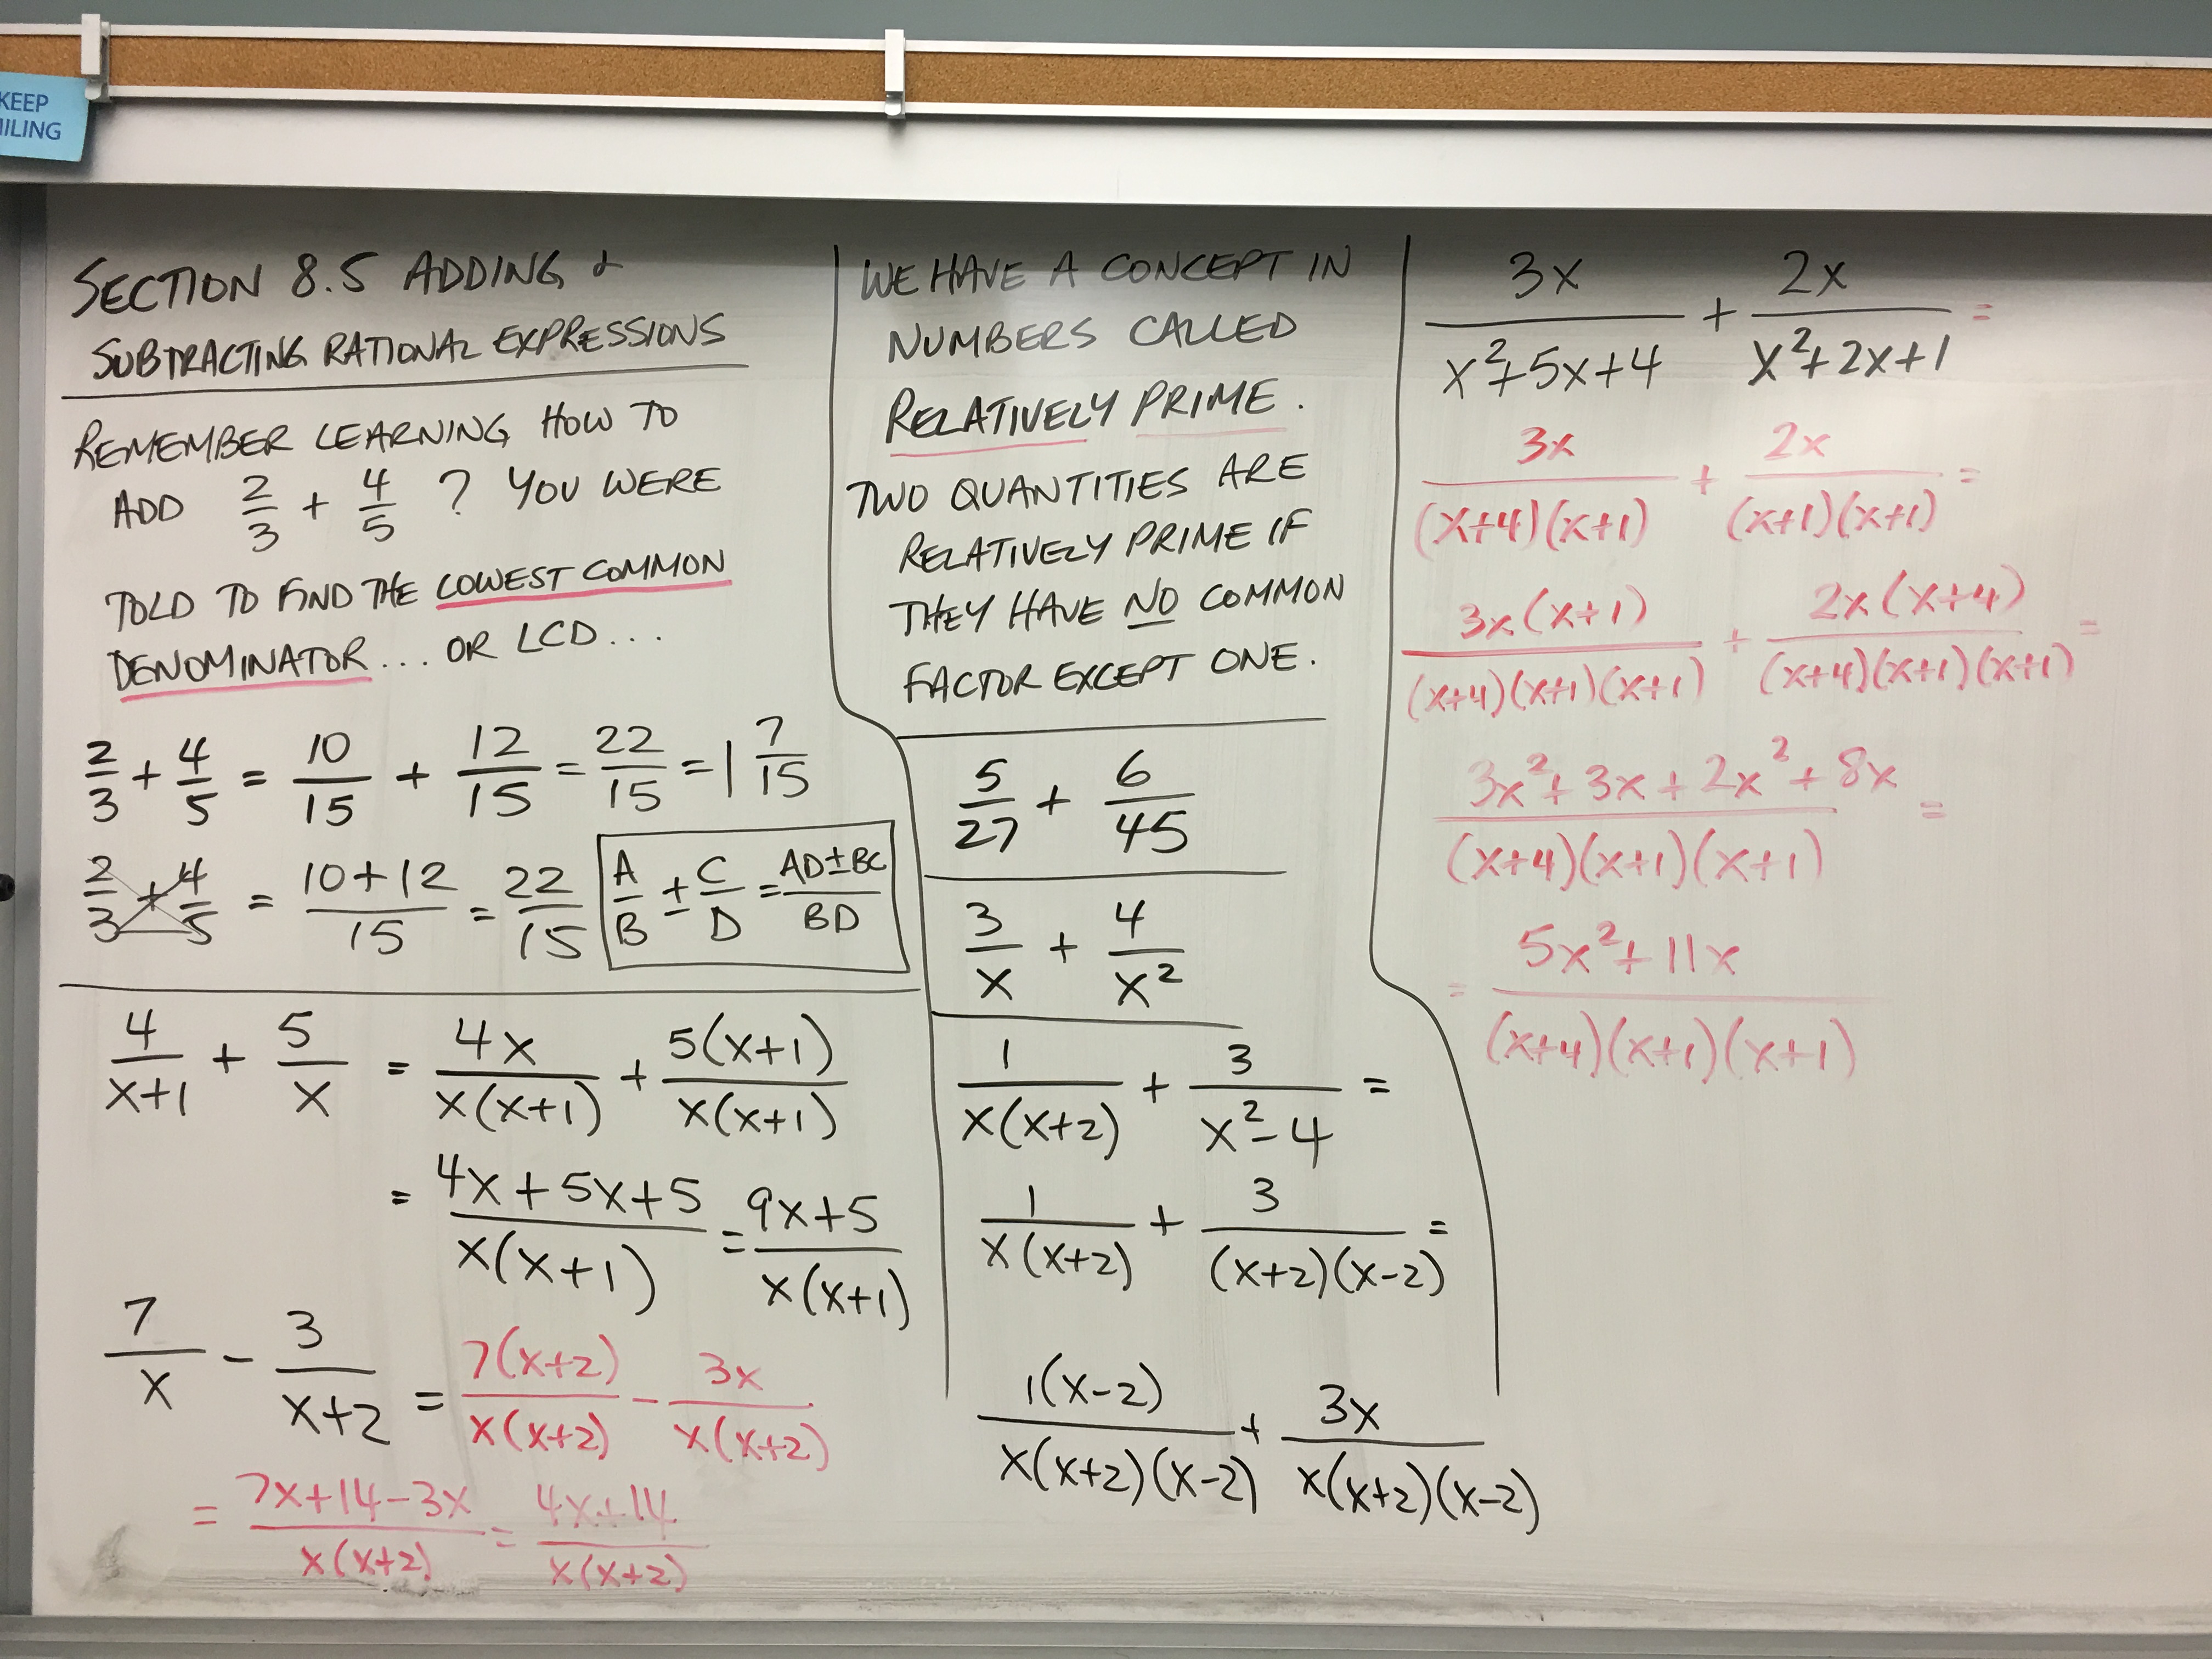 KEEP
MILING
SECTION 8.5 ADDING &
SUBTRACTING RATIONAL EXPRESSIONS
REMEMBER LEARNING HOW TO
ADD 2/3 + 4/5 ? YOU WERE
TOLD TO FIND THE LOWEST COMMON
DENOMINATOR... OR LCD...
2/3 + 4/5 = 10/15 + 12/15 = 22/15 = 1 7/15
2/3 + 4/5 = (10+12)/15 = 22/15
A/B ± C/D = (AD±BC)/BD
4/(x+1) + 5/x = 4x/(x(x+1)) + 5(x+1)/(x(x+1))
= (4x+5x+5)/(x(x+1)) = (9x+5)/(x(x+1))
7/x - 3/(x+2) = 7(x+2)/(x(x+2)) - 3x/(x(x+2))
= (7x+14-3x)/(x(x+2)) = (4x+14)/(x(x+2))
WE HAVE A CONCEPT IN
NUMBERS CALLED
RELATIVELY PRIME.
TWO QUANTITIES ARE
RELATIVELY PRIME IF
THEY HAVE NO COMMON
FACTOR EXCEPT ONE.
5/27 + 6/45
3/x + 4/x²
1/(x(x+2)) + 3/(x²-4) =
1/(x(x+2)) + 3/((x+2)(x-2)) =
1(x-2)/(x(x+2)(x-2)) + 3x/(x(x+2)(x-2))
3x/(x²+5x+4) + 2x/(x²+2x+1) =
3x/((x+4)(x+1)) + 2x/((x+1)(x+1)) =
3x(x+1)/((x+4)(x+1)(x+1)) + 2x(x+4)/((x+4)(x+1)(x+1)) =
(3x²+3x+2x²+8x)/((x+4)(x+1)(x+1)) =
= (5x²+11x)/((x+4)(x+1)(x+1))